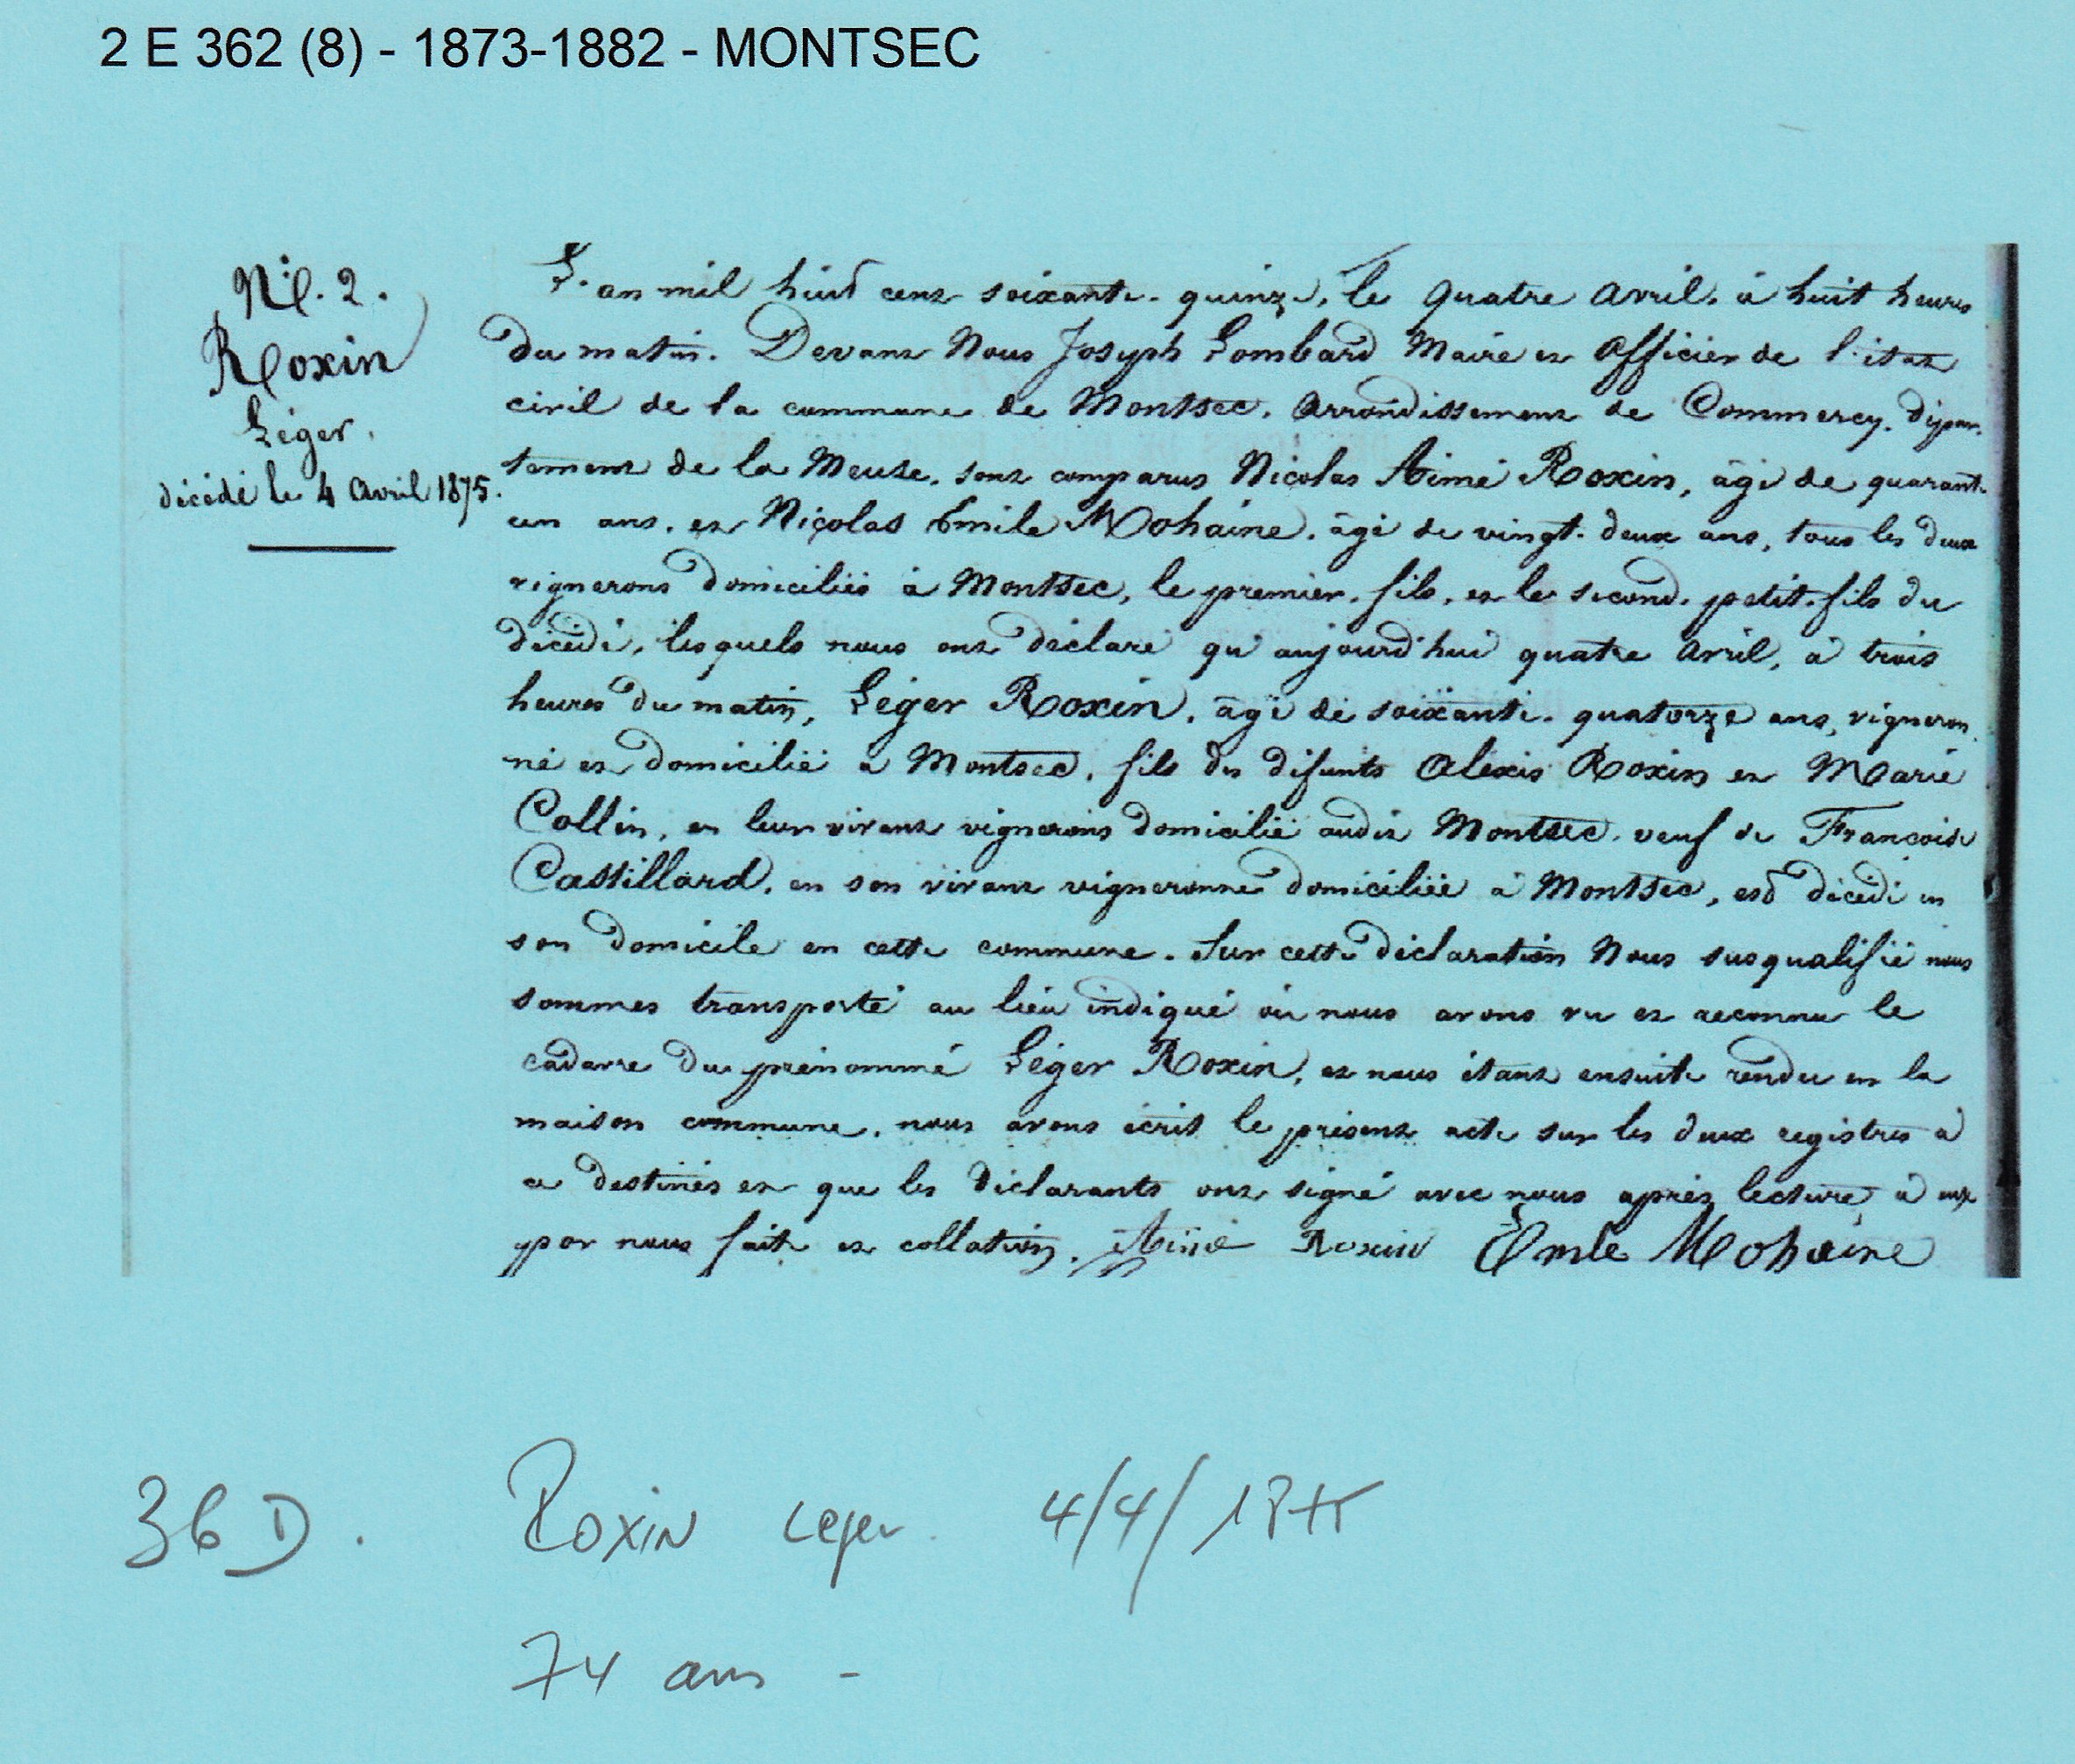 2 E 362 (8) - 1873-1882 - MONTSEC
N° 2.
Roxin
Léger.
décédé le 4 Avril 1875.
L'an mil huit cent soixante-quinze, le quatre Avril, à huit heures
du matin. Devant Nous Joseph Lombard Maire et Officier de l'état
civil de la commune de Montsec, Arrondissement de Commercy, dépar-
tement de la Meuse, sont comparus Nicolas Aimé Roxin, âgé de quarante
un ans, et Nicolas Emile Mohaine, âgé de vingt-deux ans, tous les deux
vignerons domiciliés à Montsec, le premier, fils, et le second, petit-fils du
décédé, lesquels nous ont déclaré qu'aujourd'hui quatre Avril, à trois
heures du matin, Léger Roxin, âgé de soixante-quatorze ans, vigneron
né et domicilié à Montsec, fils des défunts Alexis Roxin et Marie
Collin, en leur vivant vignerons domicilié audit Montsec, veuf de Françoise
Castillard, en son vivant vigneronne domiciliée à Montsec, est décédé en
son domicile en cette commune. Sur cette déclaration Nous susqualifié nous
sommes transporté au lieu indiqué où nous avons vu et reconnu le
cadavre du prénommé Léger Roxin, et nous étant ensuite rendu en la
maison commune, nous avons écrit le présent acte sur les deux registres à
ce destinés et que les déclarants ont signé avec nous après lecture à eux
par nous faite et collation. Aimé Roxin Emile Mohaine
36 D.
Roxin Leger 4/4/1875
74 ans -